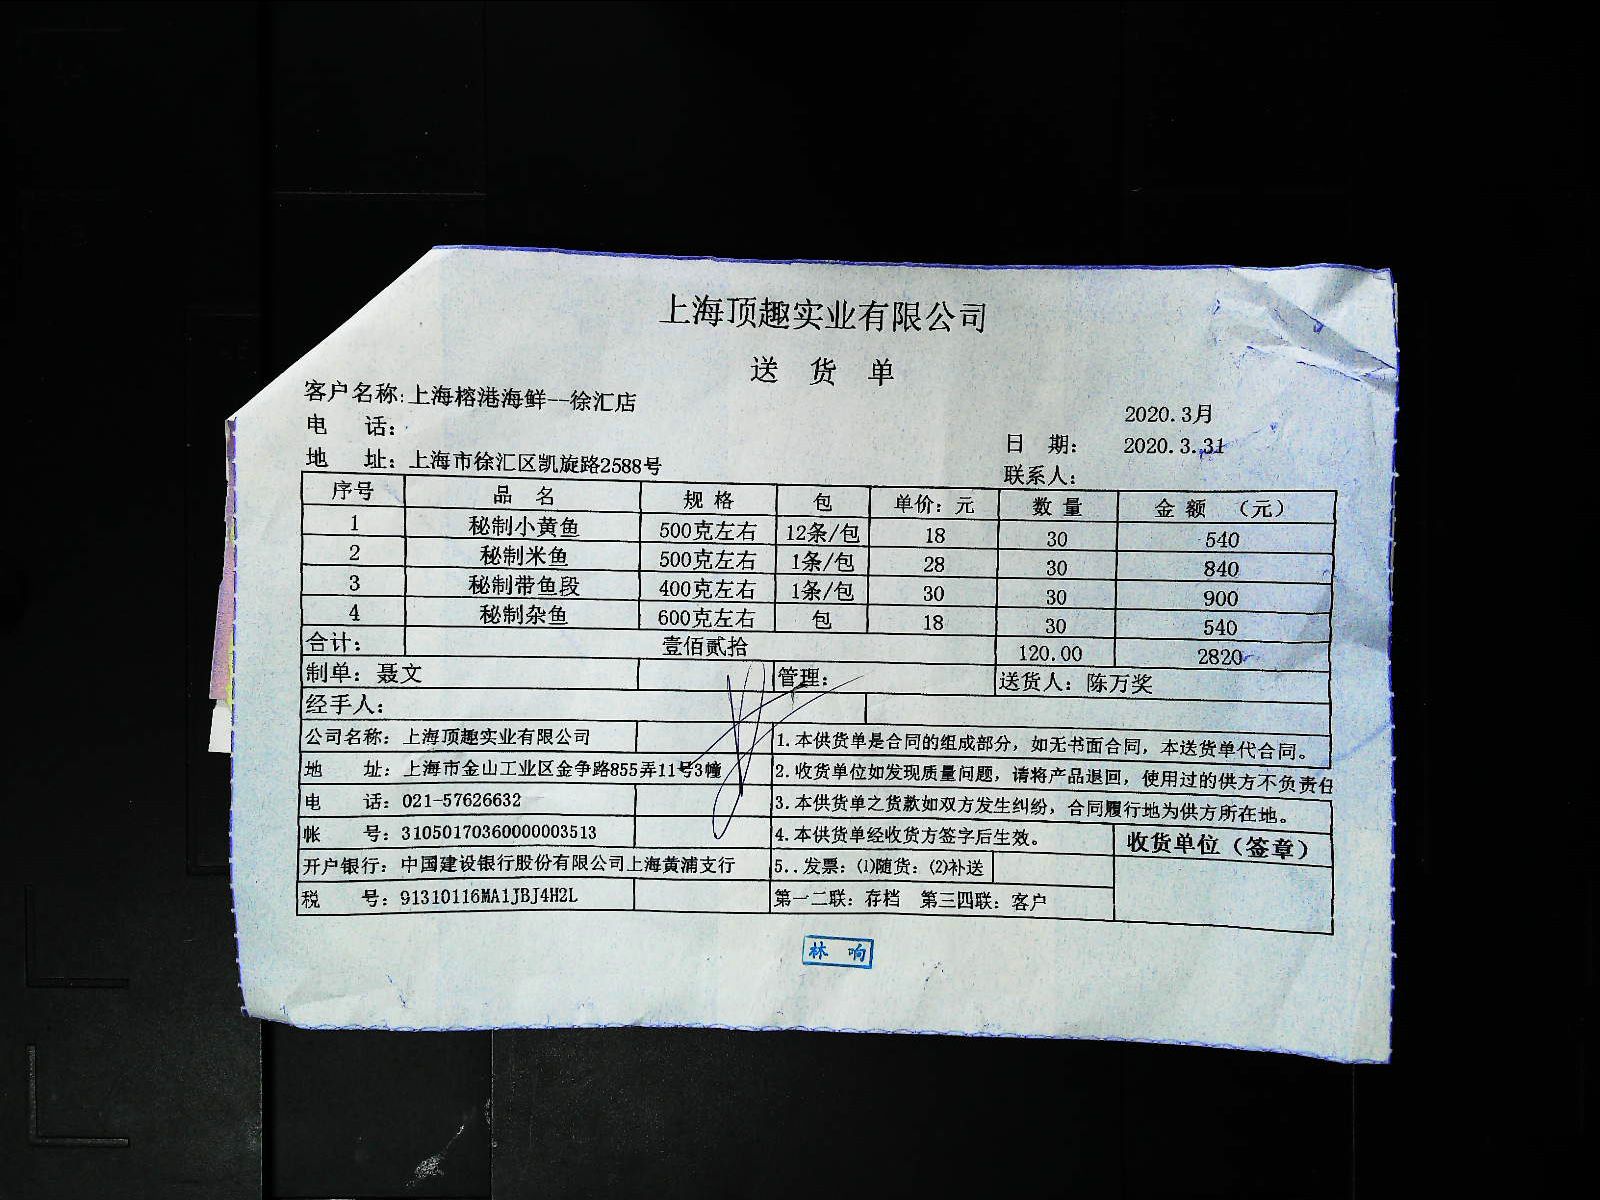 上海顶趣实业有限公司
送 货 单
客户名称:上海榕港海鲜--徐汇店
2020.3月
电 话:
日 期: 2020.3.31
地 址: 上海市徐汇区凯旋路2588号
联系人:
序号 品 名 规 格 包 单价: 元 数 量 金 额 （元）
1 秘制小黄鱼 500克左右 12条/包 18 30 540
2 秘制米鱼 500克左右 1条/包 28 30 840
3 秘制带鱼段 400克左右 1条/包 30 30 900
4 秘制杂鱼 600克左右 包 18 30 540
合计: 壹佰贰拾 120.00 2820
制单: 聂文 管理: 送货人: 陈万奖
经手人:
公司名称: 上海顶趣实业有限公司 1.本供货单是合同的组成部分，如无书面合同，本送货单代合同。
地 址: 上海市金山工业区金争路855弄11号3幢 2.收货单位如发现质量问题，请将产品退回，使用过的供方不负责任
电 话: 021-57626632 3.本供货单之货款如双方发生纠纷，合同履行地为供方所在地。
帐 号: 31050170360000003513 4.本供货单经收货方签字后生效。 收货单位（签章）
开户银行: 中国建设银行股份有限公司上海黄浦支行 5..发票: ⑴随货: ⑵补送
税 号: 91310116MA1JBJ4H2L 第一二联: 存档 第三四联: 客户
林 响